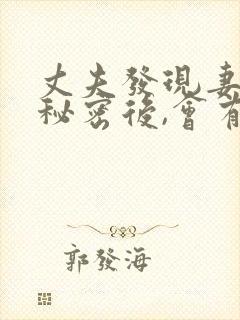 丈夫發現妻
秘密後,會有
郭發海